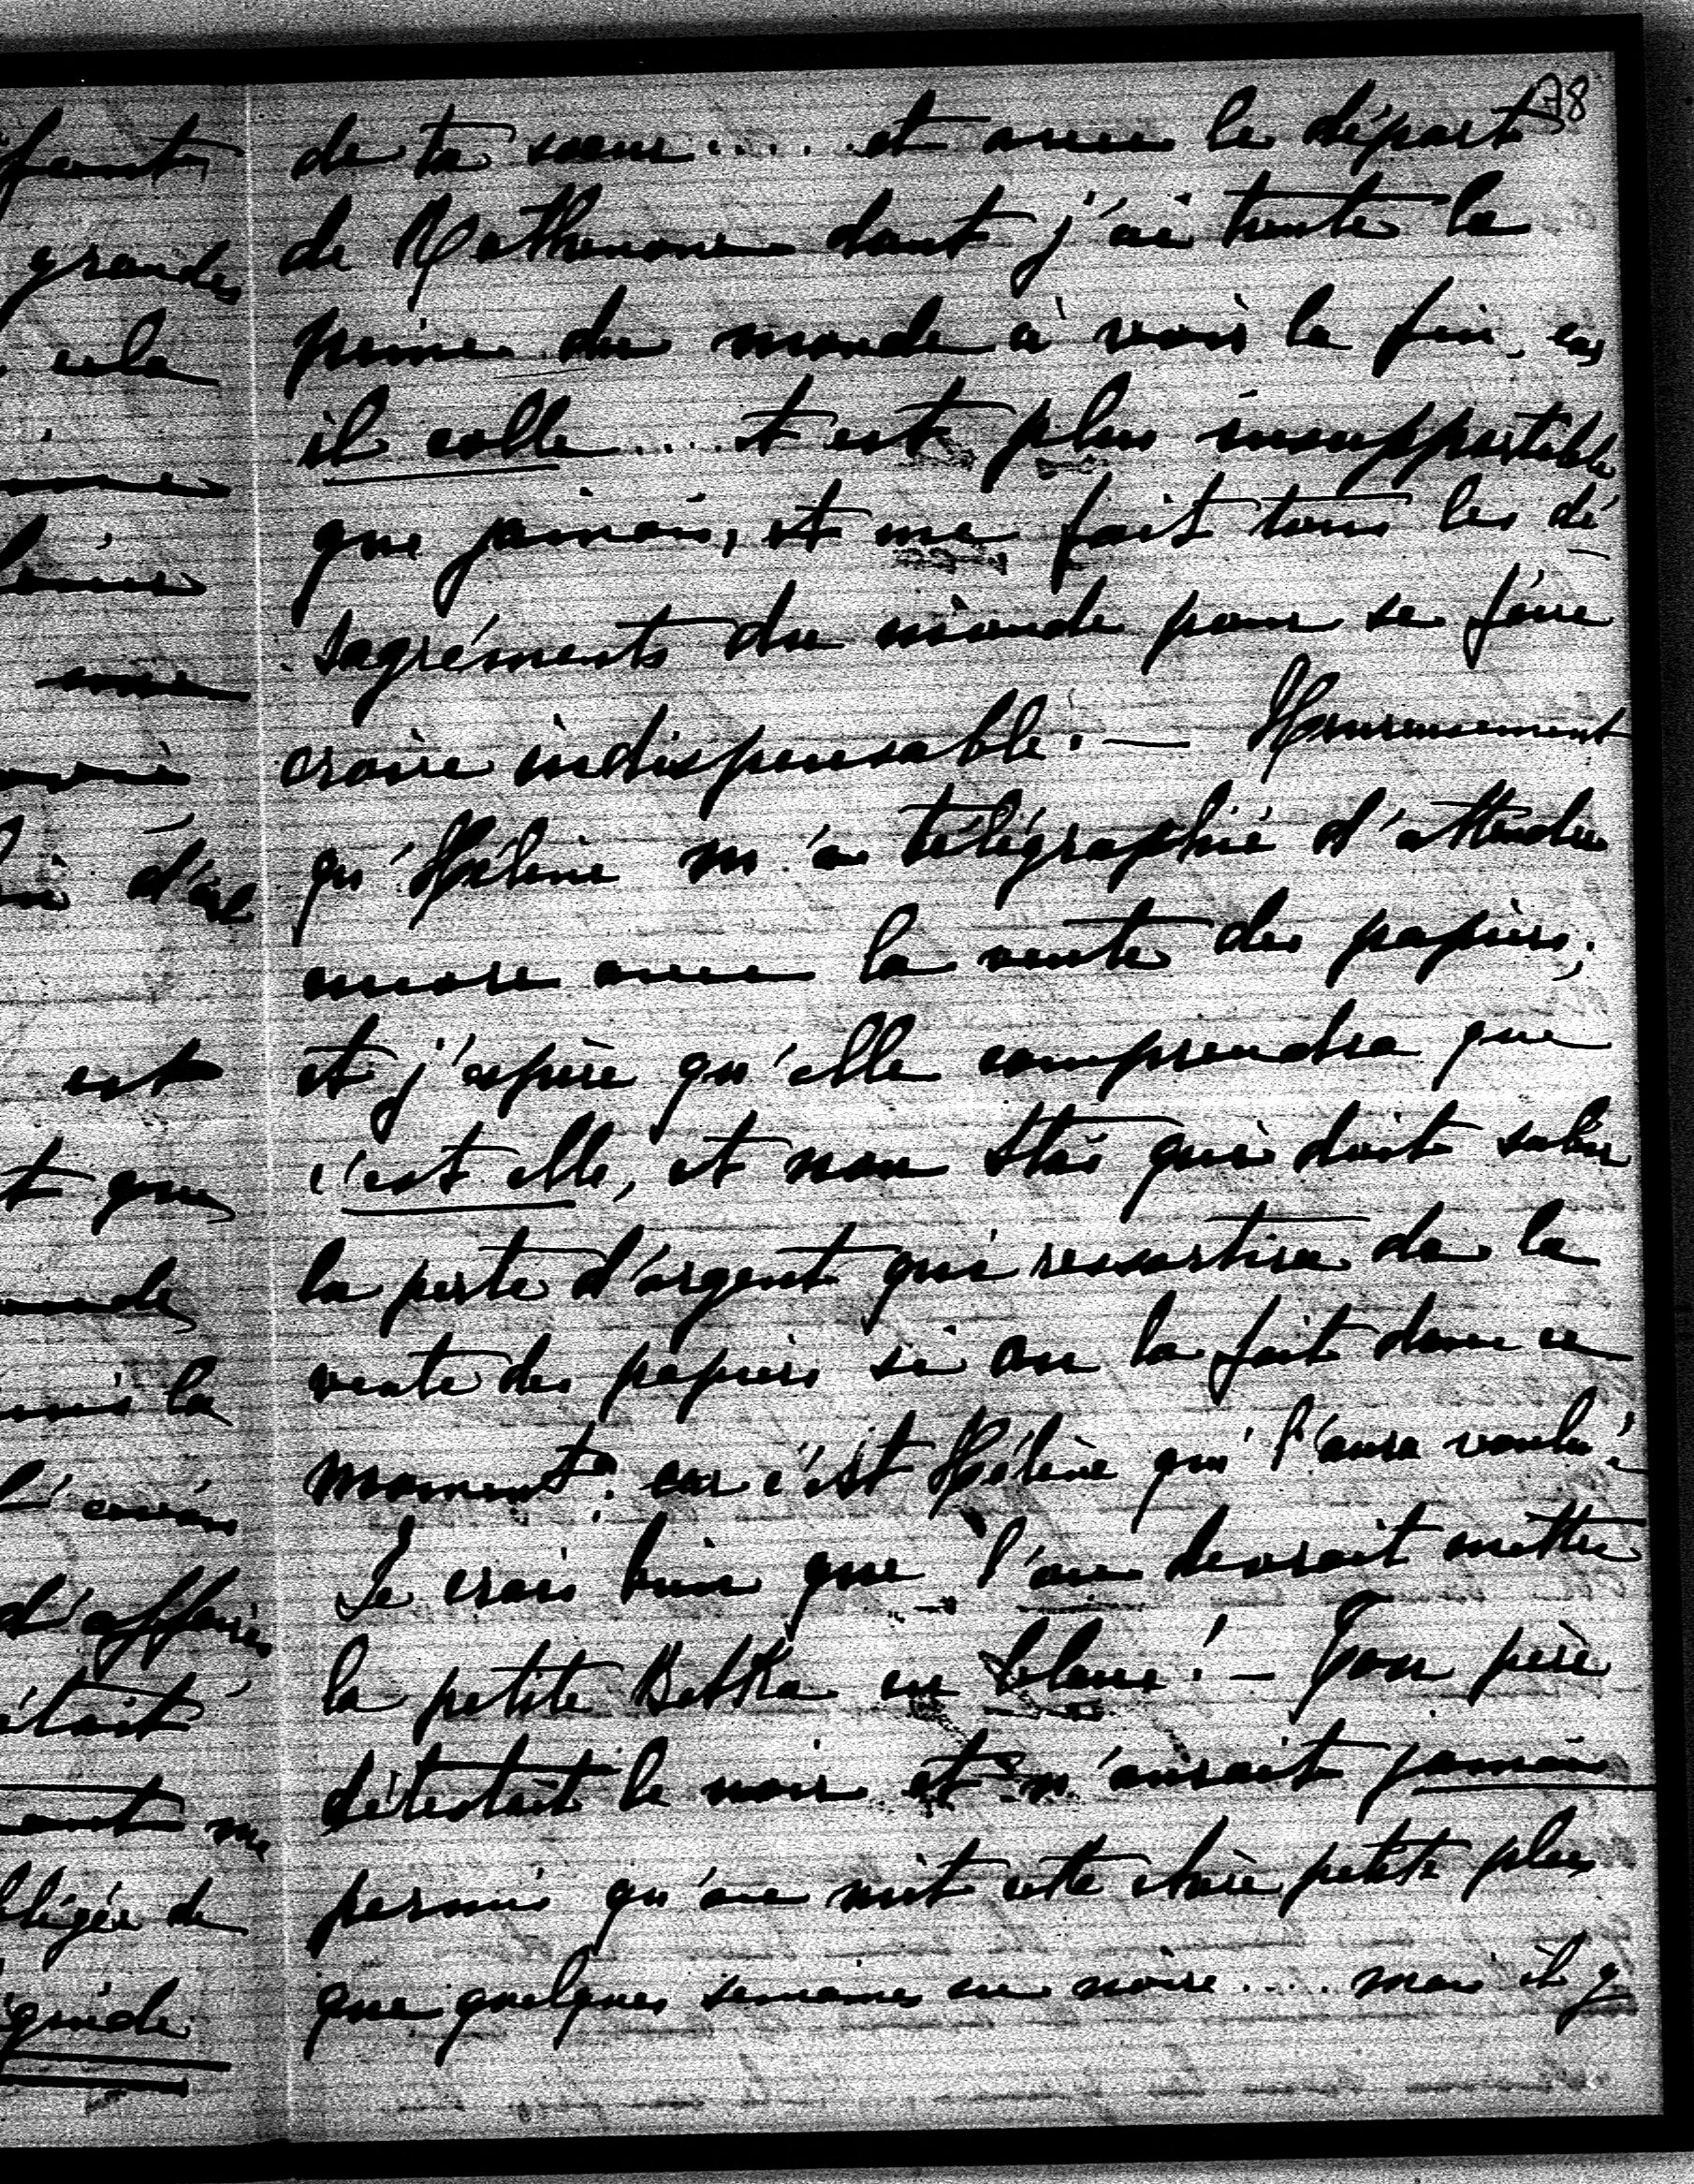 78
de ta sœur..... et avec le départ
de Mathenone dont j'ai toute la
peine du monde à voir la fin, car
il colle.... et est plus insupportable
que jamais, et me fait tous les dé
sagréments du monde pour se faire
croire indispensable. — Heureusement
qu'Hélène m'a télégraphié d'attendre
encore avec la vente des papiers;
et j'espère qu'elle comprendra que
c'est elle, et non qui doit subir
la perte d'argent qui ressortira de la
vente des papiers si on la fait dans ce
moment: car c'est Hélène qui l'aura voulu;
Je crois bien que l'on devrait mettre
la petite Bebka en blanc! — Ton père
détestait le noir et n'aurait jamais
permis qu'on mit cette chère petite plus
que quelques semaines en noire.... mais il y
grandes
cela
est
t que
la
d'affaires
était